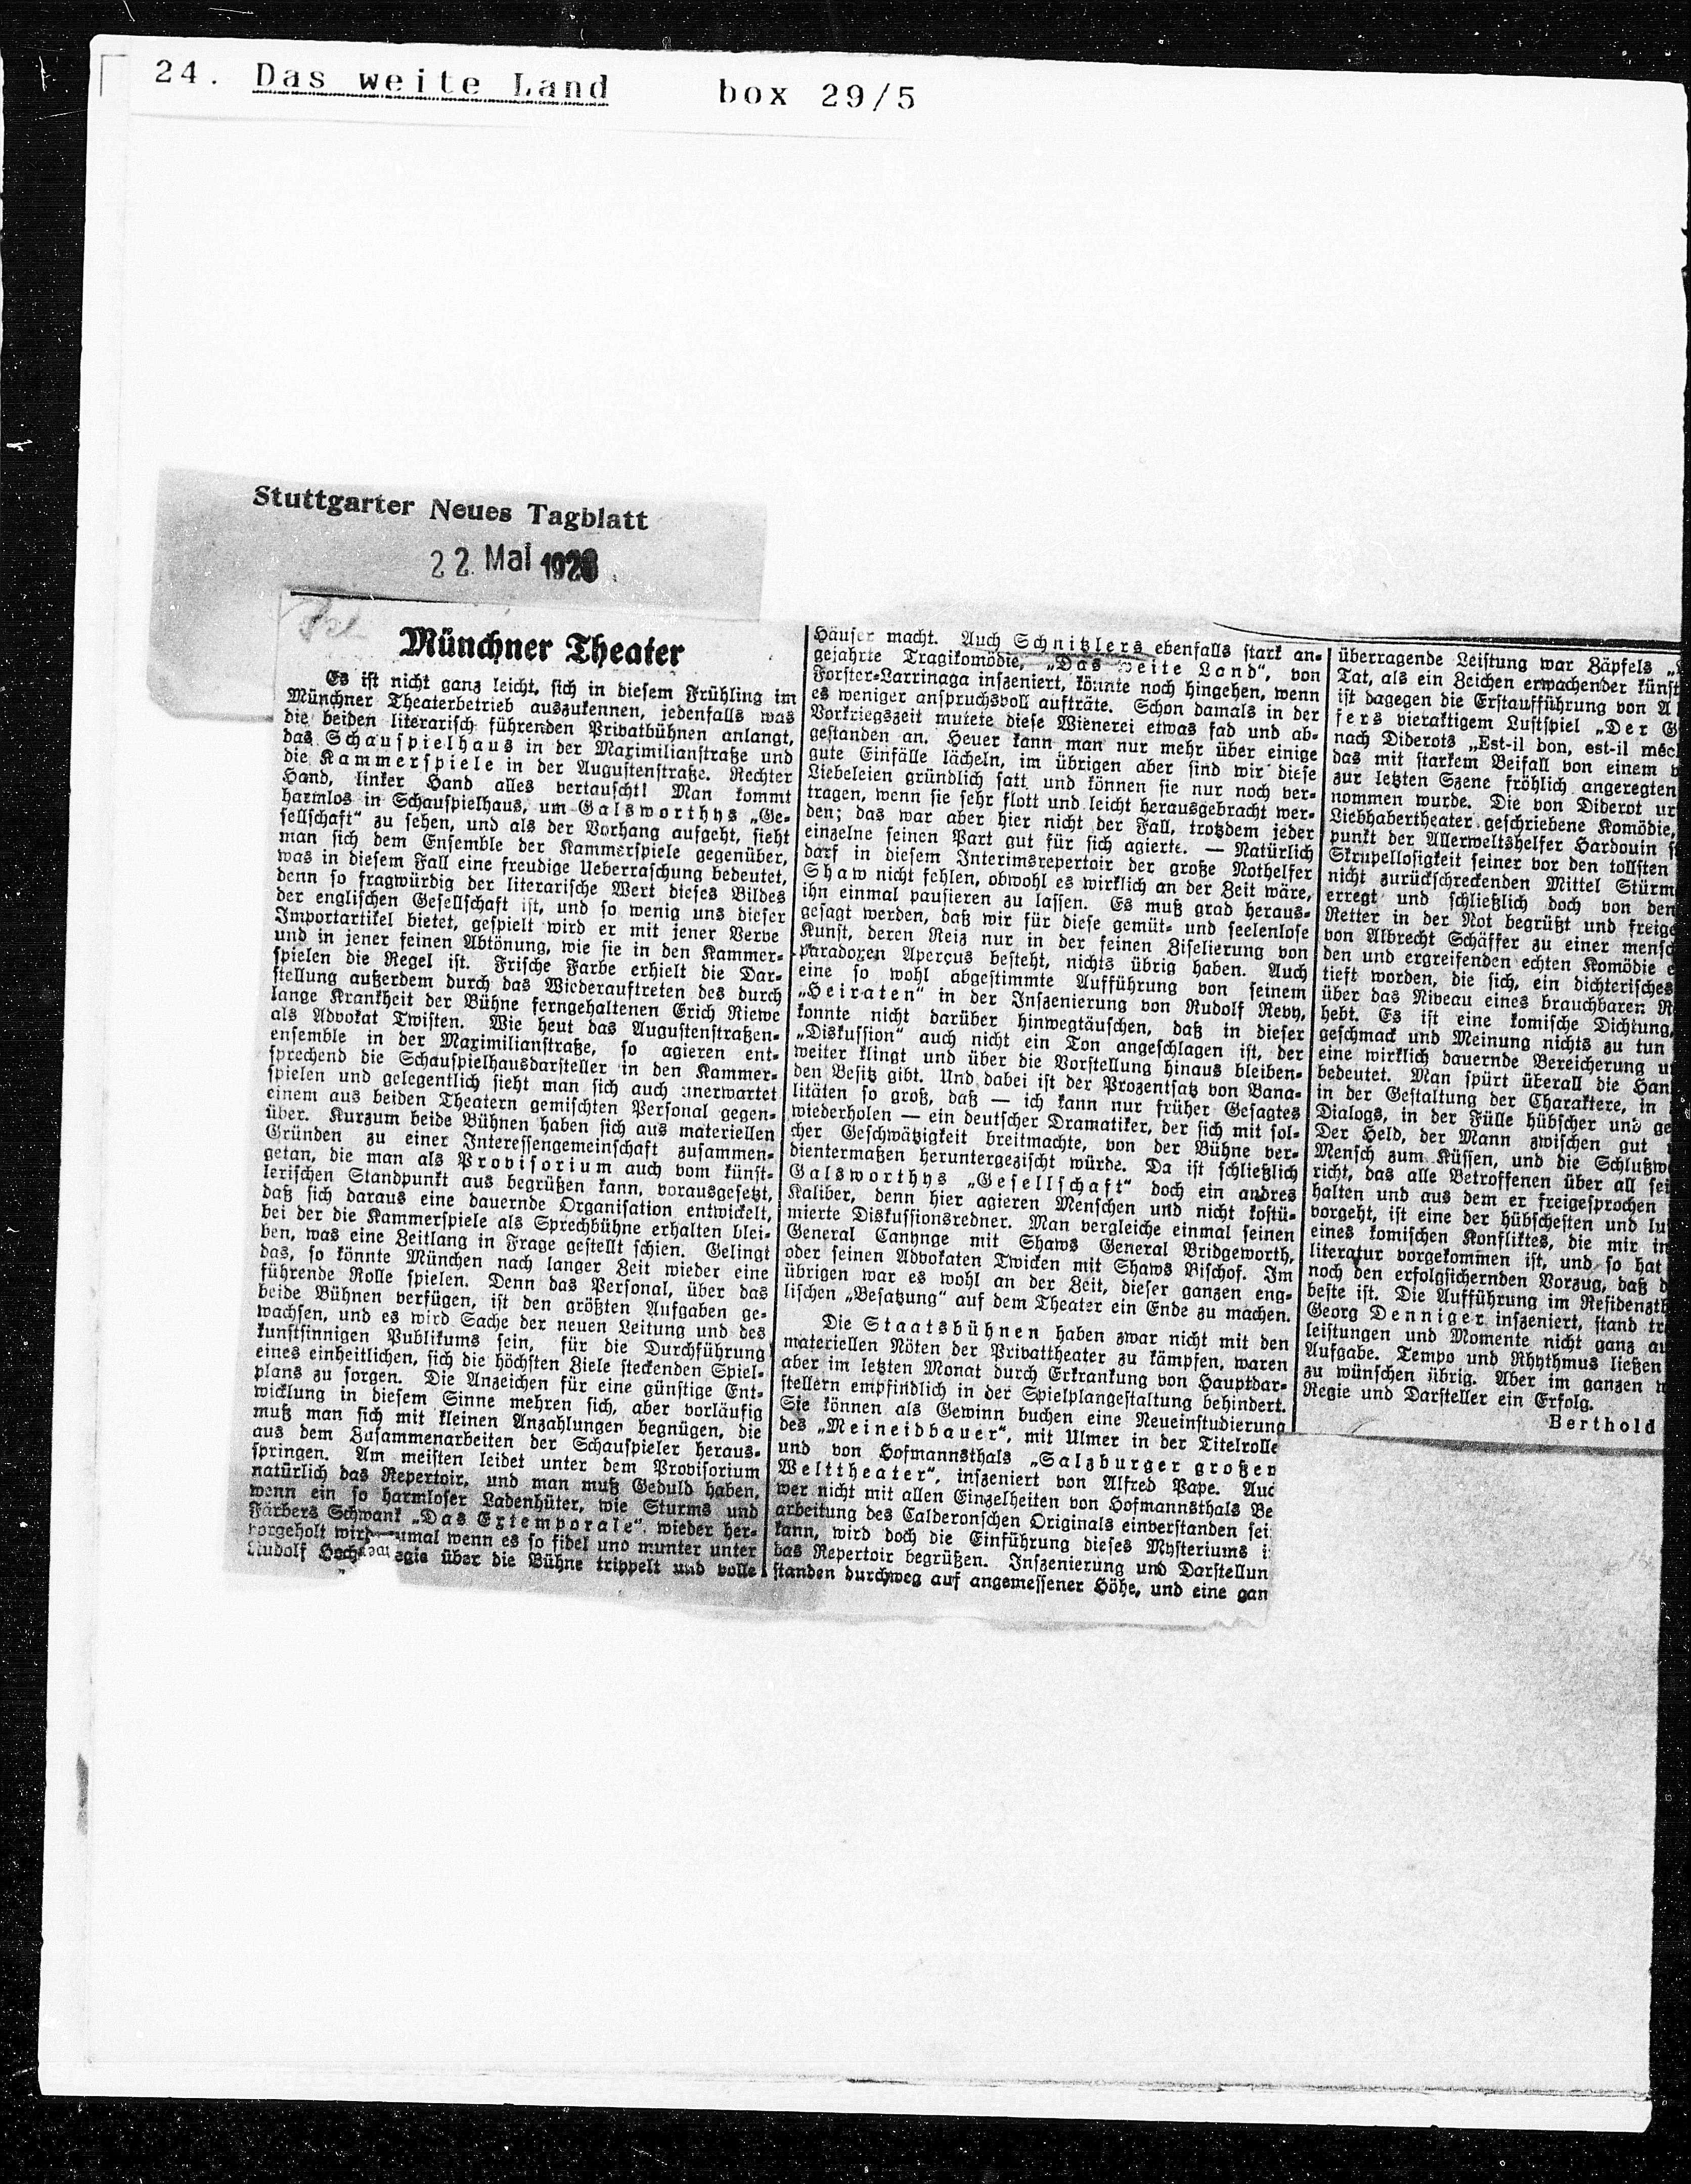 24. Das weite Land box 29/5
Stuttgarter Neues Tagblatt
22. Mai 1926
Münchner Theater
Es ist nicht ganz leicht, sich in diesem Frühling im
Münchner Theaterbetrieb auszukennen, jedenfalls was
die beiden literarisch führenden Privatbühnen anlangt,
das Schauspielhaus in der Maximilianstraße und
die Kammerspiele in der Augustenstraße. Rechter
Hand, linker Hand alles vertauscht! Man kommt
harmlos in Schauspielhaus, um Galsworthys „Ge-
sellschaft“ zu sehen, und als der Vorhang aufgeht, sieht
man sich dem Ensemble der Kammerspiele gegenüber,
was in diesem Fall eine freudige Ueberraschung bedeutet,
denn so fragwürdig der literarische Wert dieses Bildes
der englischen Gesellschaft ist, und so wenig uns dieser
Importartikel bietet, gespielt wird er mit jener Verve
und in jener feinen Abtönung, wie sie in den Kammer-
spielen die Regel ist. Frische Farbe erhielt die Dar-
stellung außerdem durch das Wiederauftreten des durch
lange Krankheit der Bühne ferngehaltenen Erich Riewe
als Advokat Twisten. Wie heut das Augustenstraßen-
ensemble in der Maximilianstraße, so agieren ent-
sprechend die Schauspielhausdarsteller in den Kammer-
spielen und gelegentlich sieht man sich auch unerwartet
einem aus beiden Theatern gemischten Personal gegen-
über. Kurzum beide Bühnen haben sich aus materiellen
Gründen zu einer Interessengemeinschaft zusammen-
getan, die man als Provisorium auch vom künst-
lerischen Standpunkt aus begrüßen kann, vorausgesetzt,
daß sich daraus eine dauernde Organisation entwickelt,
bei der die Kammerspiele als Sprechbühne erhalten blei-
ben, was eine Zeitlang in Frage gestellt schien. Gelingt
das, so könnte München nach langer Zeit wieder eine
führende Rolle spielen. Denn das Personal, über das
beide Bühnen verfügen, ist den größten Aufgaben ge-
wachsen, und es wird Sache der neuen Leitung und des
kunstsinnigen Publikums sein, für die Durchführung
eines einheitlichen, sich die höchsten Ziele steckenden Spiel-
plans zu sorgen. Die Anzeichen für eine günstige Ent-
wicklung in diesem Sinne mehren sich, aber vorläufig
muß man sich mit kleinen Anzahlungen begnügen, die
aus dem Zusammenarbeiten der Schauspieler heraus-
springen. Am meisten leidet unter dem Provisorium
natürlich das Repertoir, und man muß Geduld haben,
wenn ein so harmloser Ladenhüter, wie Sturms und
Färbers Schwank „Das Extemporale“, wieder her-
vorgeholt wird umal wenn es so fidel und munter unter
Rudolf Hoch egie über die Bühne trippelt und volle
Häuser macht. Auch Schnitzlers ebenfalls stark an-
gejahrte Tragikomödie, „Das weite Land“, von
Forster-Larrinaga inszeniert, könnte noch hingehen, wenn
es weniger anspruchsvoll aufträte. Schon damals in der
Vorkriegszeit mutete diese Wienerei etwas fad und ab-
gestanden an. Heuer kann man nur mehr über einige
gute Einfälle lächeln, im übrigen aber sind wir diese
Liebeleien gründlich satt und können sie nur noch ver-
tragen, wenn sie sehr flott und leicht herausgebracht wer-
den; das war aber hier nicht der Fall, trotzdem jeder
einzelne seinen Part gut für sich agierte. — Natürlich
darf in diesem Interimsrepertoir der große Nothelfer
Shaw nicht fehlen, obwohl es wirklich an der Zeit wäre,
ihn einmal pausieren zu lassen. Es muß grad heraus-
gesagt werden, daß wir für diese gemüt- und seelenlose
Kunst, deren Reiz nur in der feinen Ziselierung von
paradoxen Aperçus besteht, nichts übrig haben. Auch
eine so wohl abgestimmte Aufführung von seinem
„Heiraten“ in der Inszenierung von Rudolf Revy,
konnte nicht darüber hinwegtäuschen, daß in dieser
„Diskussion“ auch nicht ein Ton angeschlagen ist, der
weiter klingt und über die Vorstellung hinaus bleiben-
den Besitz gibt. Und dabei ist der Prozentsatz von Bana-
litäten so groß, daß — ich kann nur früher Gesagtes
wiederholen — ein deutscher Dramatiker, der sich mit sol-
cher Geschwätzigkeit breitmachte, von der Bühne ver-
dientermaßen heruntergezischt würde. Da ist schließlich
Galsworthys „Gesellschaft“ doch ein andres
Kaliber, denn hier agieren Menschen und nicht kostü-
mierte Diskussionsredner. Man vergleiche einmal seinen
General Canynge mit Shaws General Bridgeworth,
oder seinen Advokaten Twicken mit Shaws Bischof. Im
übrigen war es wohl an der Zeit, dieser ganzen eng-
lischen „Besatzung“ auf dem Theater ein Ende zu machen.
Die Staatsbühnen haben zwar nicht mit den
materiellen Nöten der Privattheater zu kämpfen, waren
aber im letzten Monat durch Erkrankung von Hauptdar-
stellern empfindlich in der Spielplangestaltung behindert.
Sie können als Gewinn buchen eine Neueinstudierung
des „Meineidbauer“, mit Ulmer in der Titelrolle
und von Hofmannsthals „Salzburger großen
Welttheater“, inszeniert von Alfred Pape. Auc
wer nicht mit allen Einzelheiten von Hofmannsthals Be
arbeitung des Calderonschen Originals einverstanden sei
kann, wird doch die Einführung dieses Mysteriums i
das Repertoir begrüßen. Inszenierung und Darstellun
standen durchweg auf angemessener Höhe, und eine gan
überragende Leistung war Zäpfels „
Tat, als ein Zeichen erwachender künst
ist dagegen die Erstaufführung von Al
fers vieraktigem Lustspiel „Der G
nach Diderots „Est-il bon, est-il méc
das mit starkem Beifall von einem v
zur letzten Szene fröhlich angeregten
nommen wurde. Die von Diderot ur
Liebhabertheater geschriebene Komödie,
punkt der Allerweltshelfer Hardouin s
Skrupellosigkeit seiner vor den tollsten
nicht zurückschreckenden Mittel Stürm
erregt und schließlich doch von den
Retter in der Not begrüßt und freige
von Albrecht Schäffer zu einer mensc
den und ergreifenden echten Komödie e
tieft worden, die sich, ein dichterisches
über das Niveau eines brauchbaren R
hebt. Es ist eine komische Dichtung,
geschmack und Meinung nichts zu tun
eine wirklich dauernde Bereicherung u
bedeutet. Man spürt überall die Han
in der Gestaltung der Charaktere, in
Dialogs, in der Fülle hübscher und ge
Der Held, der Mann zwischen gut
Mensch zum Küssen, und die Schlußw
richt, das alle Betroffenen über all sei
halten und aus dem er freigesprochen
vorgeht, ist eine der hübschesten und lu
eines komischen Konfliktes, die mir in
literatur vorgekommen ist, und so hat
noch den erfolgsichernden Vorzug, daß d
beste ist. Die Aufführung im Residenzth
Georg Denniger inszeniert, stand tr
leistungen und Momente nicht ganz au
Aufgabe. Tempo und Rhythmus ließen
zu wünschen übrig. Aber im ganzen w
Regie und Darsteller ein Erfolg.
Berthold